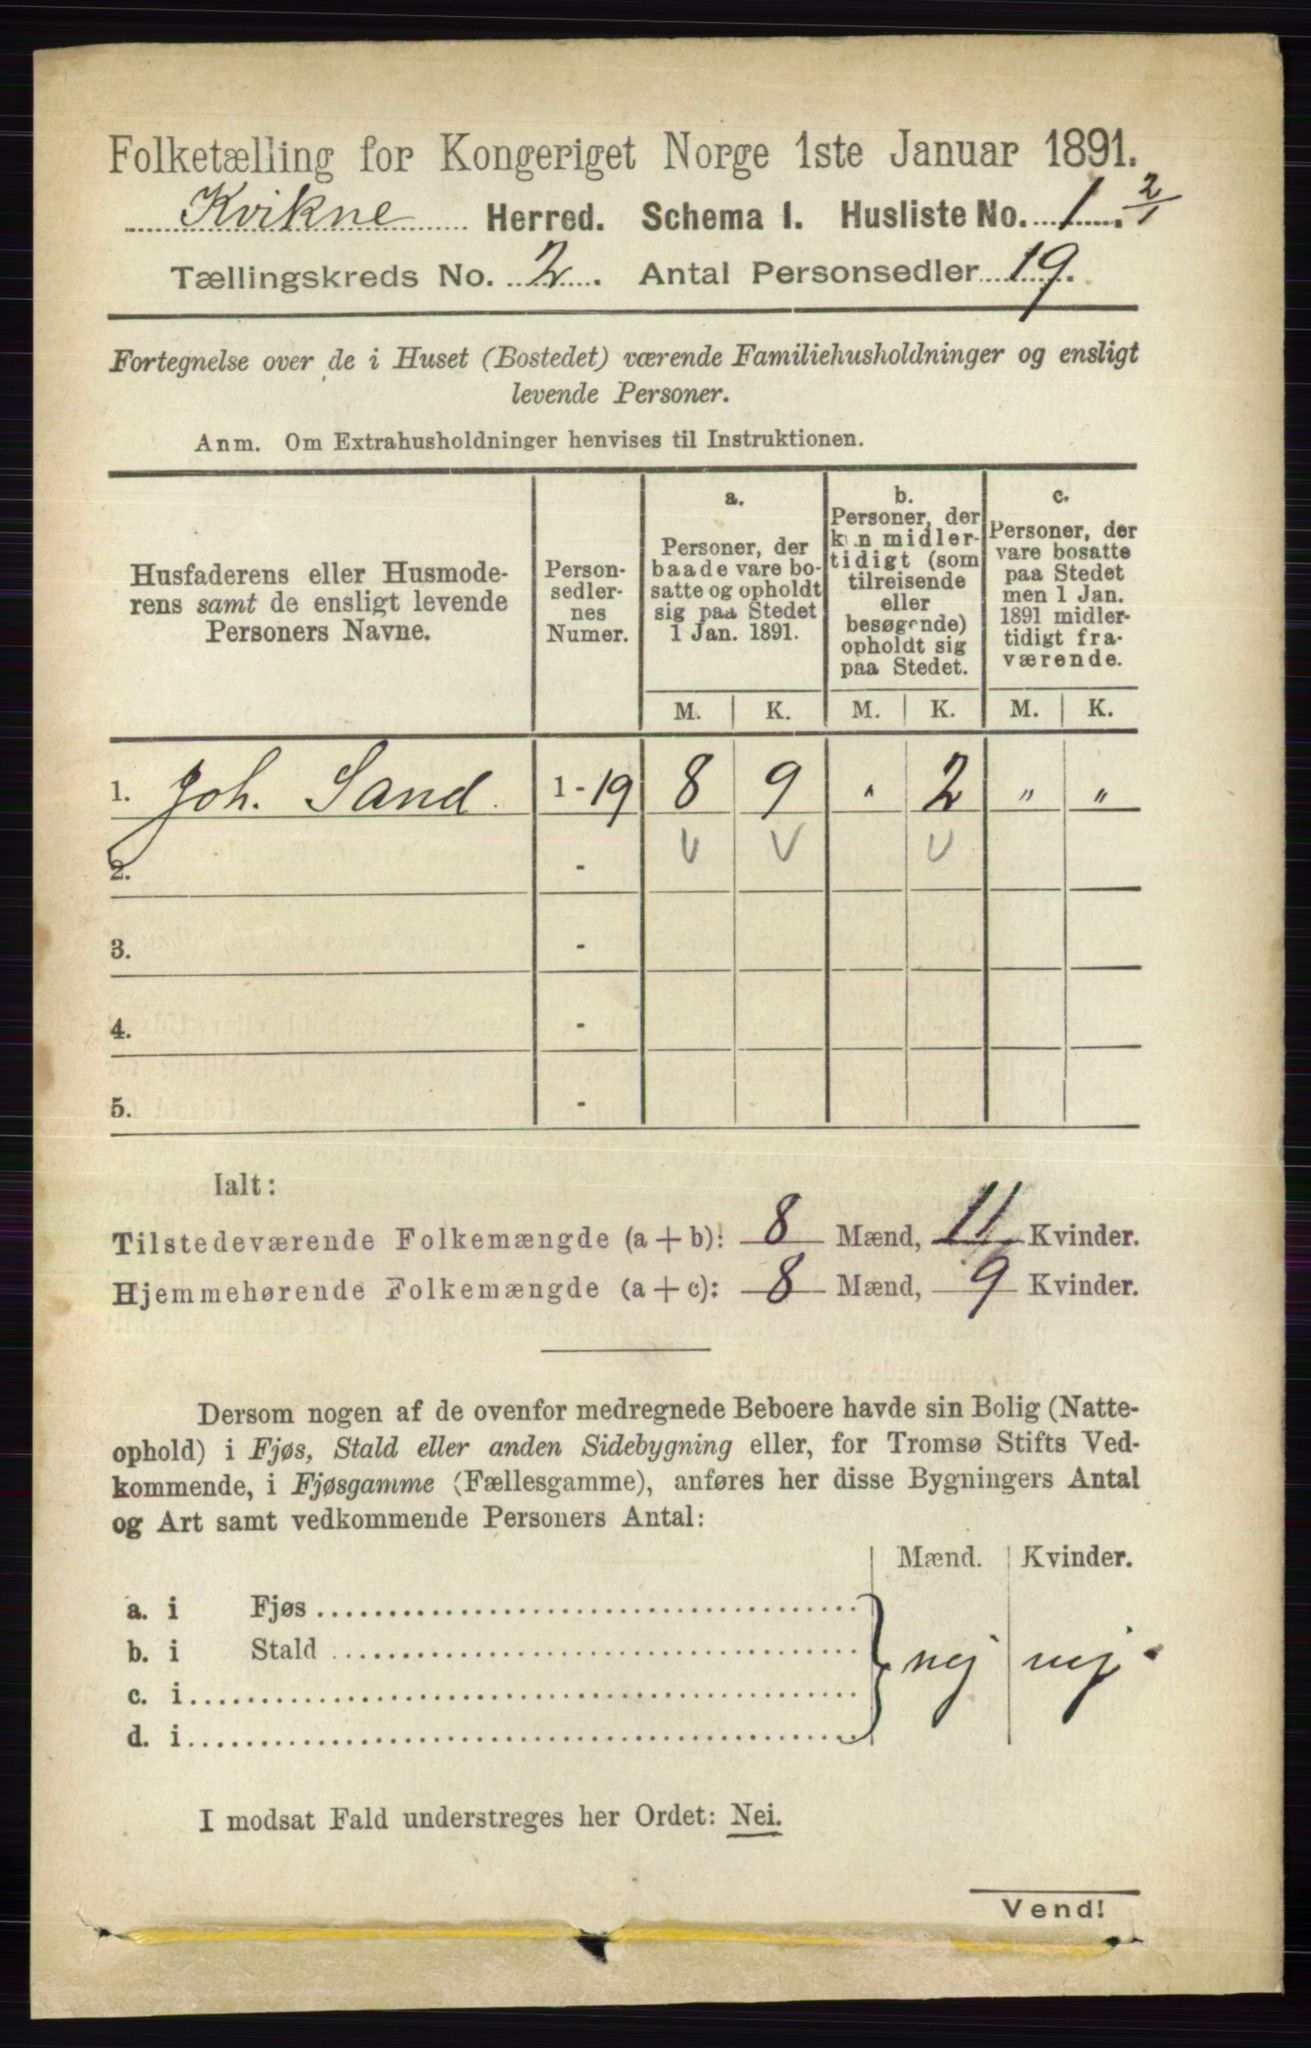 Folketælling for Kongeriget Norge 1ste Januar 1891.
Kvikne Herred. Schema I. Husliste No. 1. 2/1
Tællingskreds No. 2. Antal Personsedler 19.
Fortegnelse over de i Huset (Bostedet) værende Familiehusholdninger og ensligt
levende Personer.
Anm. Om Extrahusholdninger henvises til Instruktionen.
Husfaderens eller Husmode-
rens samt de ensligt levende
Personers Navne.
Person-
sedler-
nes
Numer.
a.
Personer, der
baade vare bo-
satte og opholdt
sig paa Stedet
1 Jan. 1891.
b.
Personer, der
kun midler-
tidigt (som
tilreisende
eller
besøgende)
opholdt sig
paa Stedet.
c.
Personer, der
vare bosatte
paa Stedet
men 1 Jan.
1891 midler-
tidigt fra-
værende.
M. K. M. K. M. K.
1. Joh. Sand. 1-19 8 9 " 2 " "
2. - V V V
3. -
4. -
5. -
Ialt:
Tilstedeværende Folkemængde (a+b): 8 Mænd, 11 Kvinder.
Hjemmehørende Folkemængde (a+c): 8 Mænd, 9 Kvinder.
Dersom nogen af de ovenfor medregnede Beboere havde sin Bolig (Natte-
ophold) i Fjøs, Stald eller anden Sidebygning eller, for Tromsø Stifts Ved-
kommende, i Fjøsgamme (Fællesgamme), anføres her disse Bygningers Antal
og Art samt vedkommende Personers Antal:
Mænd. Kvinder.
a. i Fjøs
b. i Stald nej nej
c. i
d. i
I modsat Fald understreges her Ordet: Nei.
Vend!